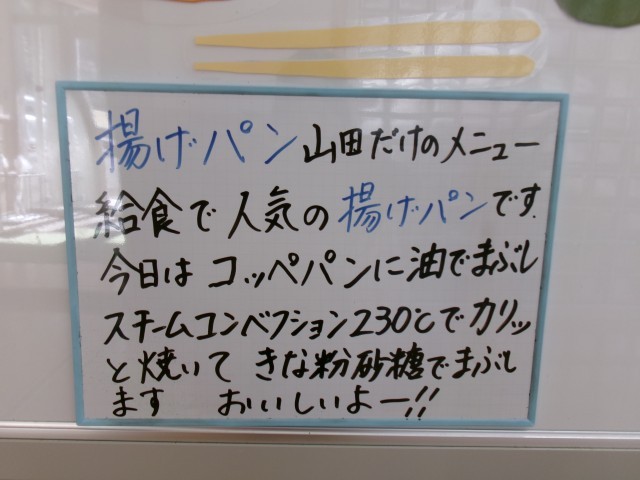 揚げパン 山田だけのメニュー
給食で人気の揚げパンです.
今日は コッペパンに油でまぶし
スチームコンベクション230℃でカリッ
と焼いて きな粉砂糖でまぶし
ます おいしいよー!!